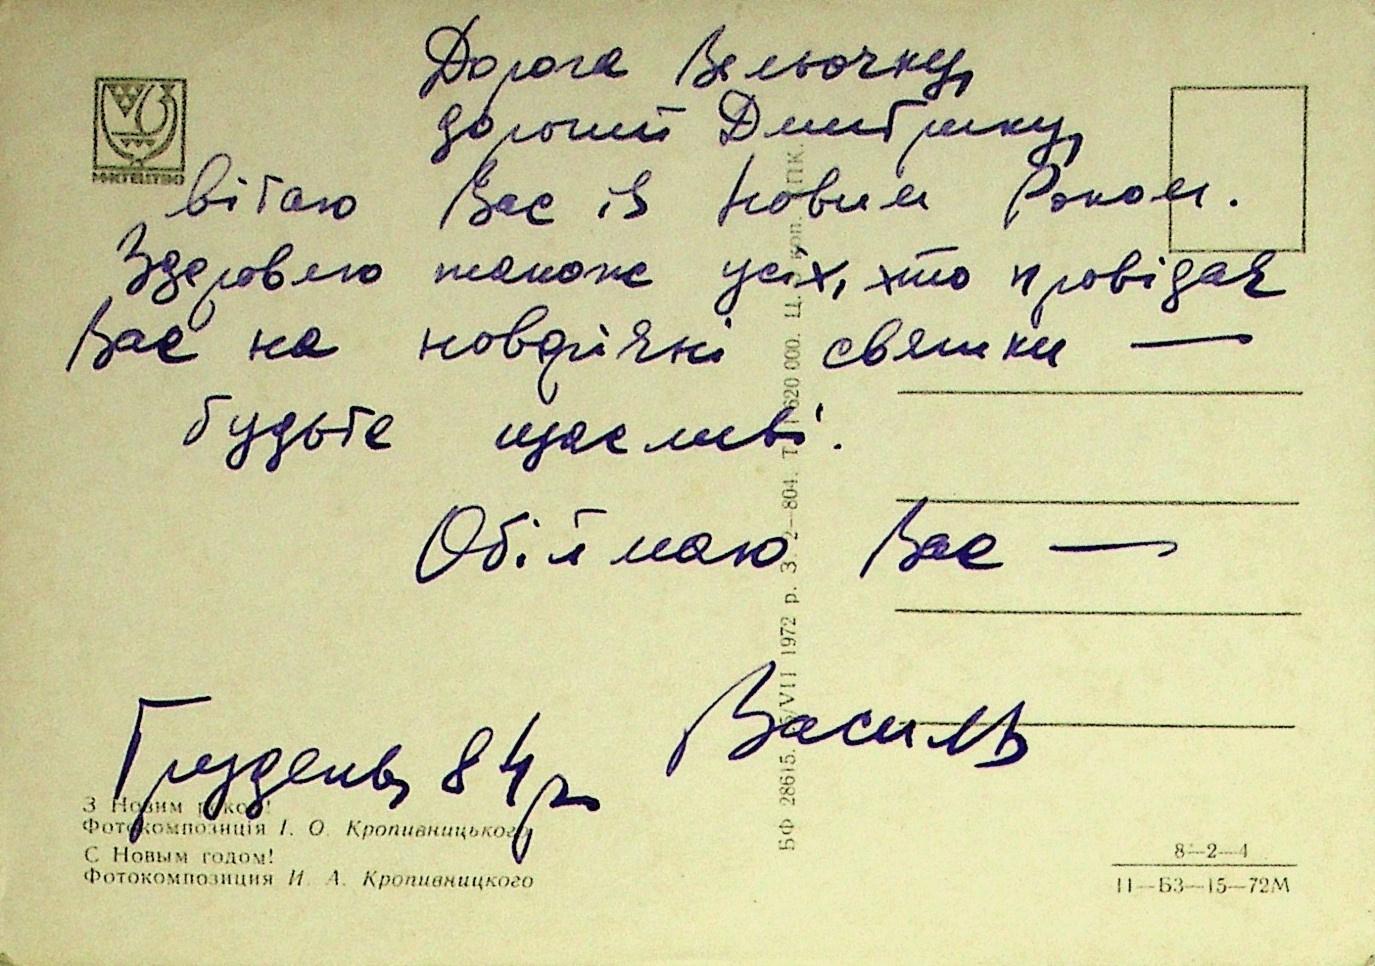 Дорога Вельочку,
дорогий Дмитрику,
вітаю Вас із Новим Роком.
Здоровлю також усіх, хто провідає
Вас на новорічні святки —
будьте щасливі.
Обіймаю Вас —
Василь
Грудень 84 р.
МИСТЕЦТВО
З Новим роком!
Фотокомпозиція І. О. Кропивницького
С Новым годом!
Фотокомпозиция И. А. Кропивницкого
БФ 28615. /VII 1972 р. З. 2—804. Т. 620 000. Ц. коп. ПК.
8—2—4
11—БЗ—15—72М